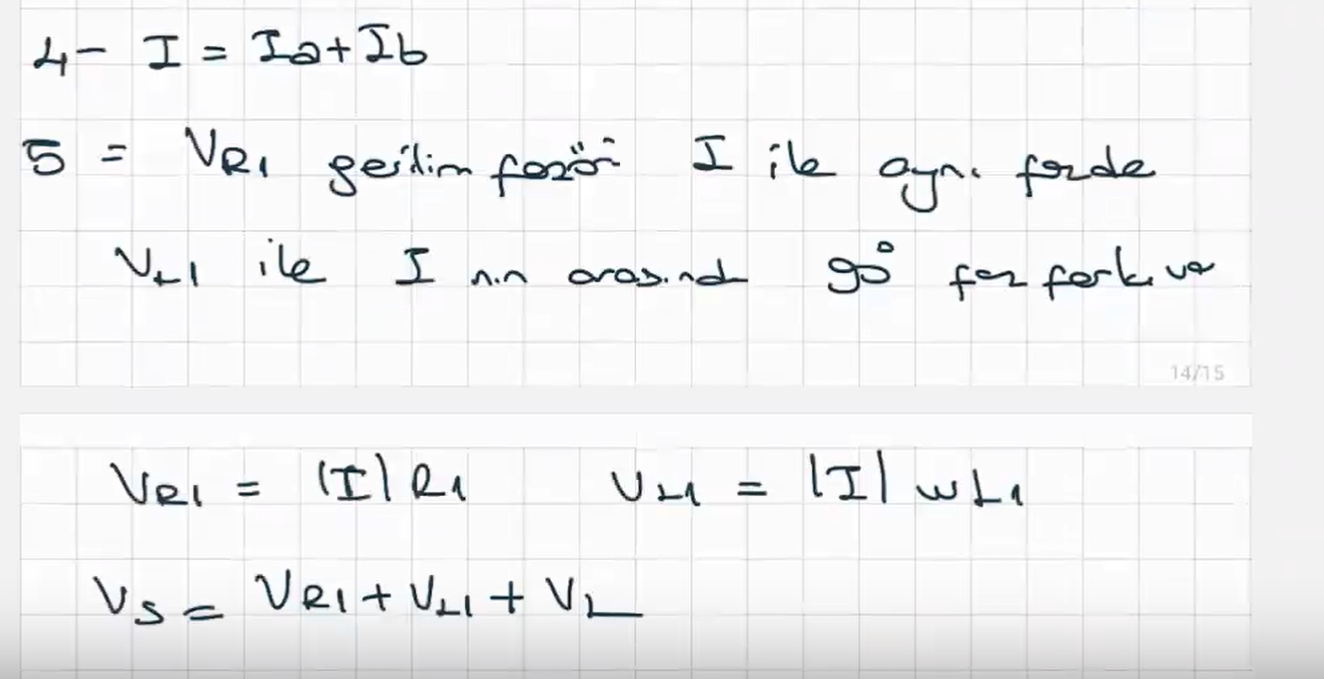 4- I = Ia+Ib
5 = VR1 gerilim fazörü I ile aynı fazda
VL1 ile I nın arasında 90° faz farkı va
14/15
VR1 = |I| R1 VL1 = |I| wL1
VS = VR1 + VL1 + VL